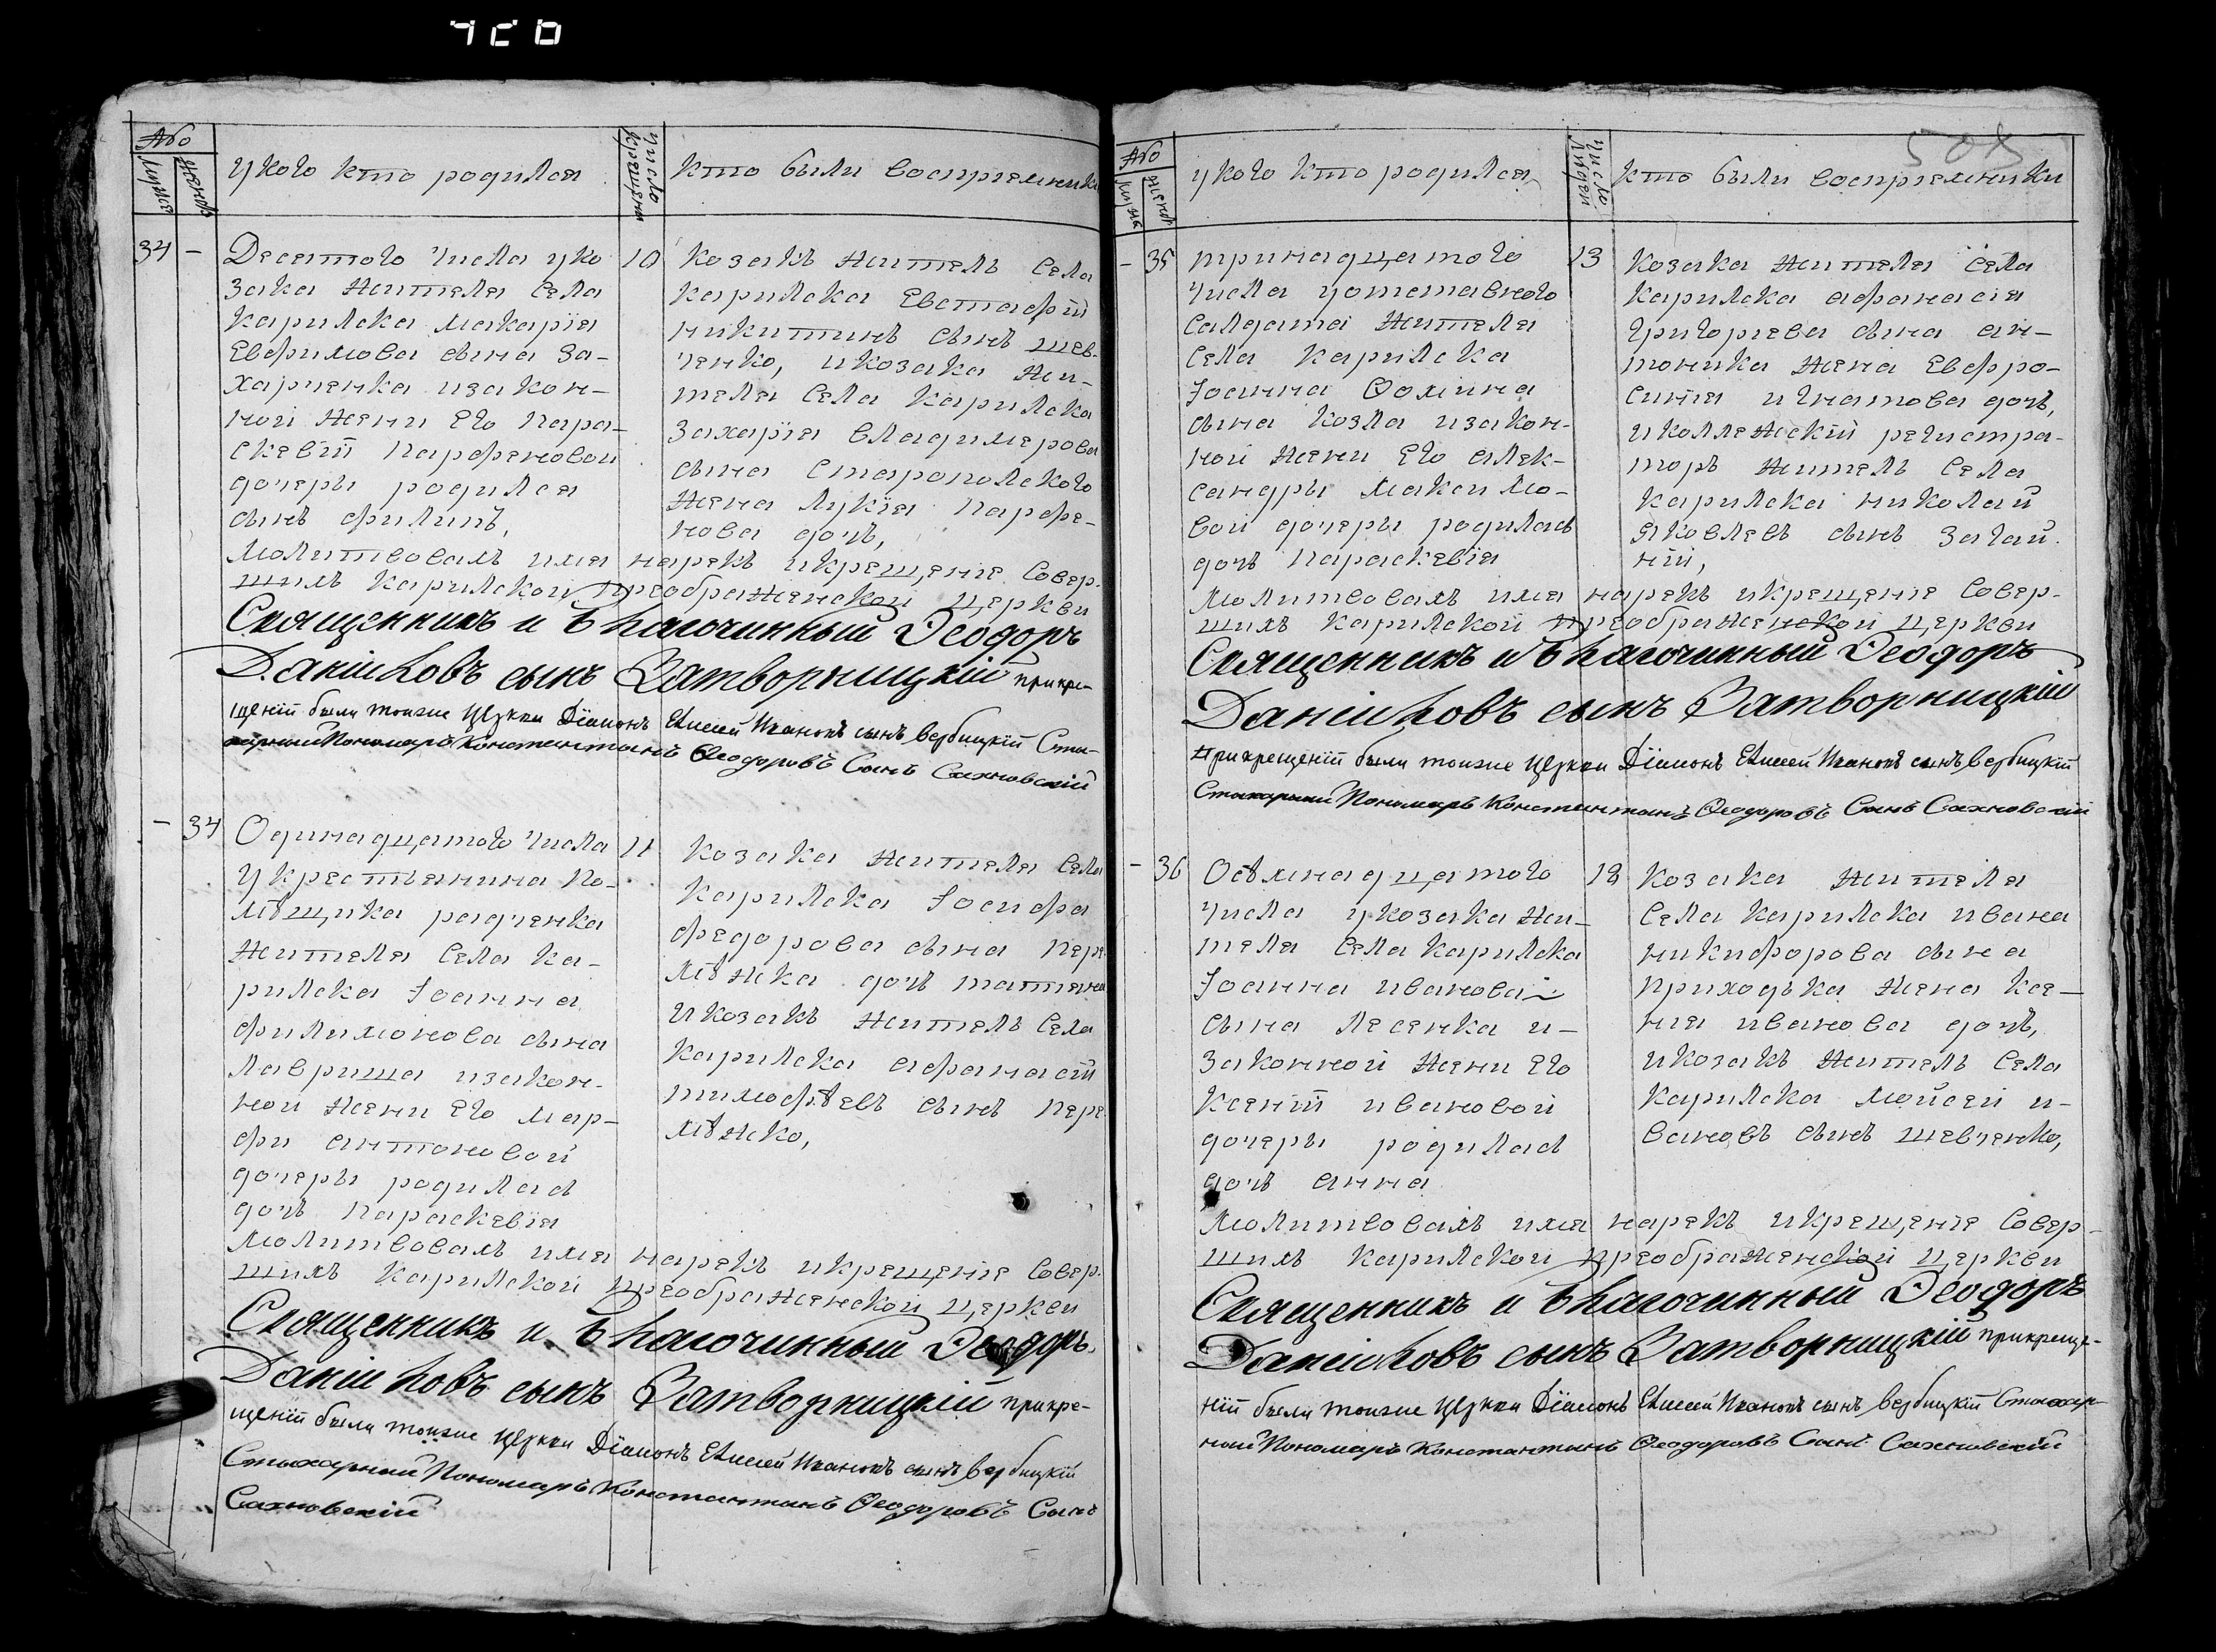 Або
мужеска
женска
у кого кто родился
число крещения
кто были восприемники
34 – Десятого числа у ко
зака жителя села
карилска макарїя
Евфимова сына за–
харченка и закон–
ной жени его пара–
скевїи парфеновои
дочеры родился
сынъ филипъ,
10 козакъ житель села
карилска Евстафїй
никитинъ сынъ шев–
ченко, и козака жи–
теля села карилска
захарїя владимерова
сына старополского
жена лукїя парфе–
нова дочь,
молитвовалъ имя нарекъ и крещенїе совер–
шилъ карилской преображенской церкви
Священникъ и Благочинный Ѳеодоръ
Данїиловъ сынъ Затворницкїй при кре–
щенїи были тоиже церкви Дїаконъ Елисей Ивановъ сынъ Вербицкїй Сти–
харный Пономаръ Константинъ Ѳеодоровъ Сынъ Сахновскїй
– 34 Одинадцатого числа
у крестьянина по–
мѣщика радченка
жителя села ка–
рилска Іоанна
филимонова сына
лавриша и закон–
ной жени его мар–
фи антоновой
дочеры родилась
дочь параскевїя
11 козака жителя села
карилска Іосифа
федорова сына пере
мѣжка дочь татїяна
и козакъ житель села
карилска афанасїй
тимофѣевъ сынъ пере
мѣжко,
молитвовалъ имя нарекъ и крещенїе совер–
шилъ карилской преображенской церкви
Священникъ и Благочинный Ѳеодоръ
Данїиловъ сынъ Затворницкїй при кре–
щенїи были тоиже церкви Дїаконъ Елисей Ивановъ сынъ Вербицкїй
Стихарный Пономаръ Константинъ Ѳеодоровъ Сынъ
Сахновскїй
505
Або
мужеска
женска
у кого кто родился
число
кто были восприемники
– 35 тринадцатого
числа у отставного
салдата жителя
села карилска
Іоанна Ѳомина
сына козла и закон–
ной жени его алек–
сандры макси мо–
вой дочеры родилась
дочь параскевїя
13 козака жителя села
карилска афанасїя
григорїева сына ан–
тоника жена Евфро–
синїя игнатова дочь,
и коллежскїй регистра–
торъ житель села
карилска николай
яковлевъ сынъ загай
нїй,
молитвовалъ имя нарекъ и крещенїе совер–
шилъ карилской преображенской церкви
Священникъ и Благочинный Ѳеодоръ
Данїиловъ сынъ Затворницкїй
При крещенїи были тоиже церкви Дїаконъ Елисей Ивановъ сынъ Вербицкїй
Стихарный Пономаръ Константинъ Ѳеодоровъ Сынъ Сахновскїй
– 36 Осѣмнадцатого
числа у козака жи–
теля села карилска
Іоанна иванова
сына лесенка и–
законной жени его
ксенїи ивановой
дочеры родилась
дочь анна
18 козака жителя
села карилска ивана
никифорова сына
приходька жена ксе–
нїя иванова дочь,
и козакъ житель села
карилска мойсей и–
вановъ сынъ шевченко,
молитвовалъ имя нарекъ и крещенїе совер–
шилъ карилской преображенской церкви
Священникъ и Благочинный Ѳеодоръ
Данїиловъ сынъ Затворницкїй при креще–
нїи были тоиже церкви Дїаконъ Елисей Ивановъ сынъ Вербицкїй Стихар–
ный Пономаръ Константинъ Ѳеодоровъ Сынъ Сахновскїй